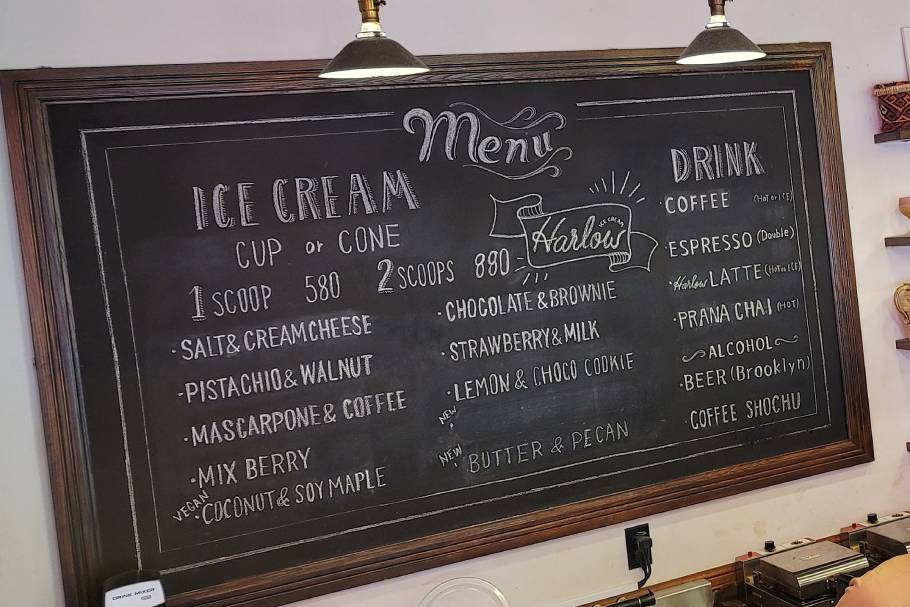 Menu
ICE CREAM
CUP or CONE
1 SCOOP 580 2 SCOOPS 880
· SALT & CREAM CHEESE
· PISTACHIO & WALNUT
· MASCARPONE & COFFEE
· MIX BERRY
VEGAN · COCONUT & SOY MAPLE
ICE CREAM
Harlow
· CHOCOLATE & BROWNIE
· STRAWBERRY & MILK
· LEMON & CHOCO COOKIE
NEW!
NEW! BUTTER & PECAN
DRINK
· COFFEE (HOT or ICE)
ESPRESSO (Double)
· Harlow LATTE (HOT or ICE)
· PRANA CHAI (HOT)
~ ALCOHOL ~
· BEER (Brooklyn)
· COFFEE SHOCHU
DRINK MIXER